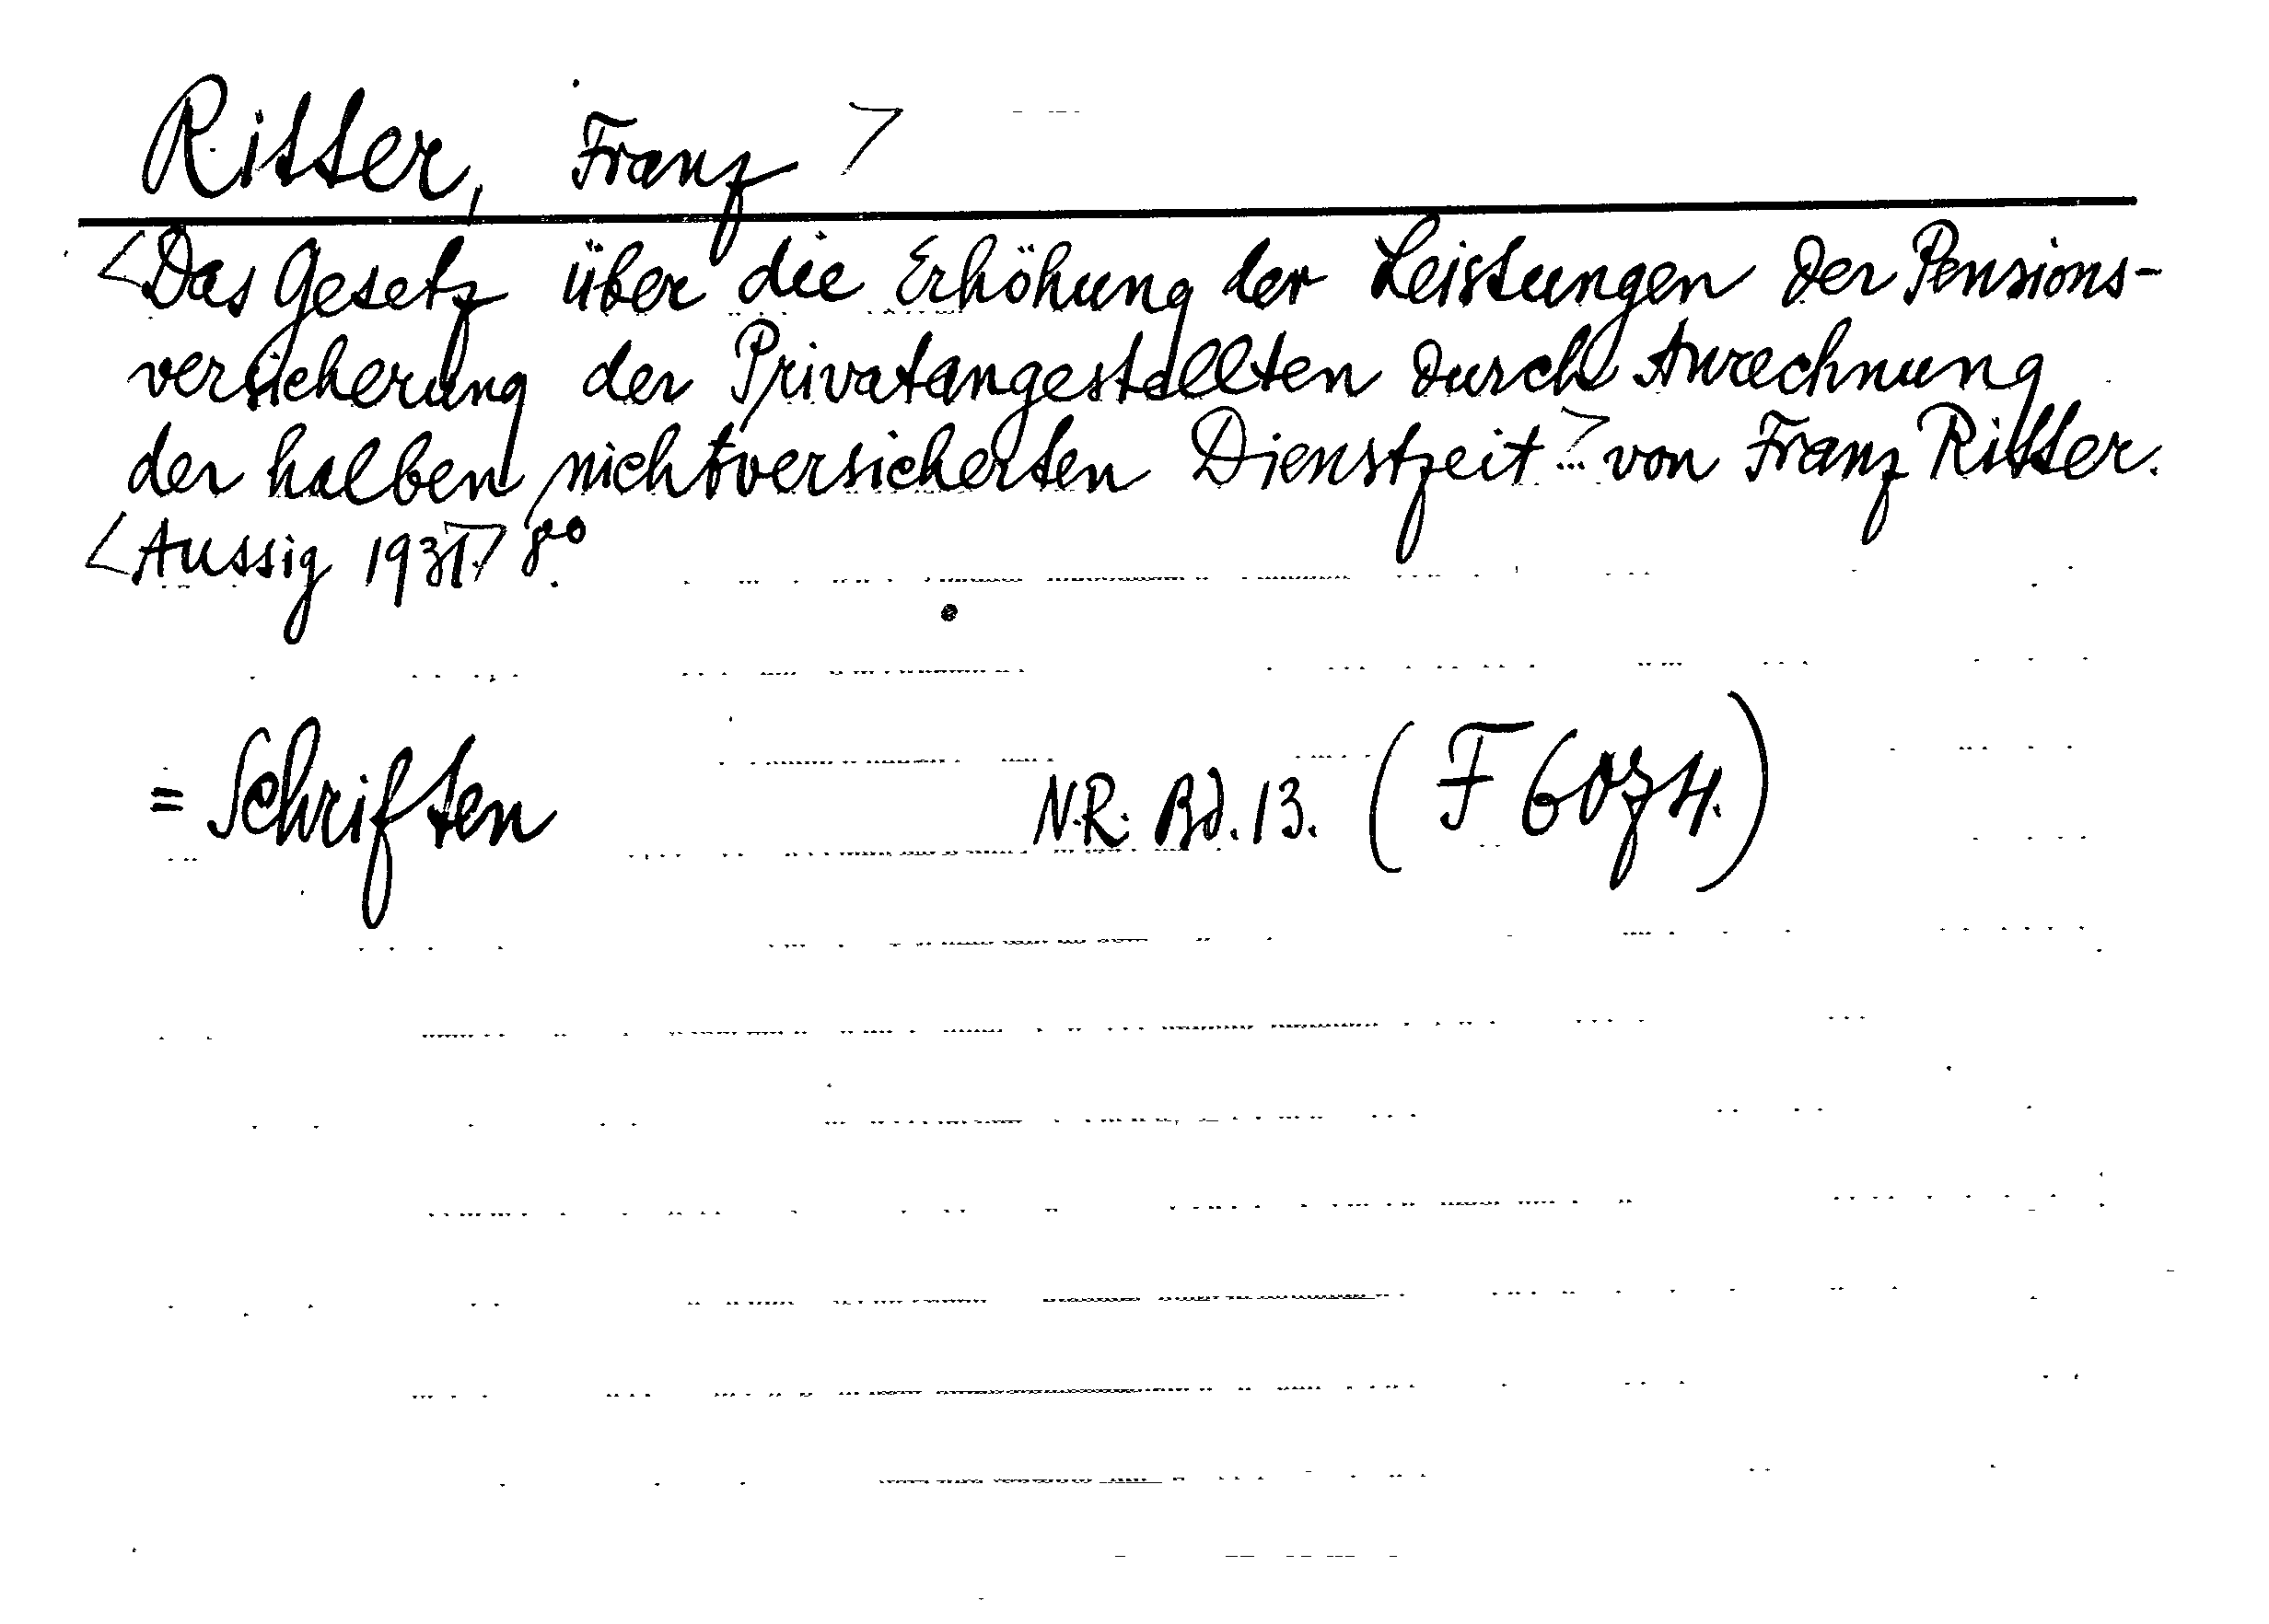 Ritter, Franz >
<Das Gesetz über die Erhöhung der Leistungen der Pensions-
versicherung der Privatangestellten durch Anrechnung
der halben nichtversicherten Dienstzeit> von Franz Ritter.
<Aussig 1931.> 8°.
= Schriften N.R. Bd. 13. (F 6034.)